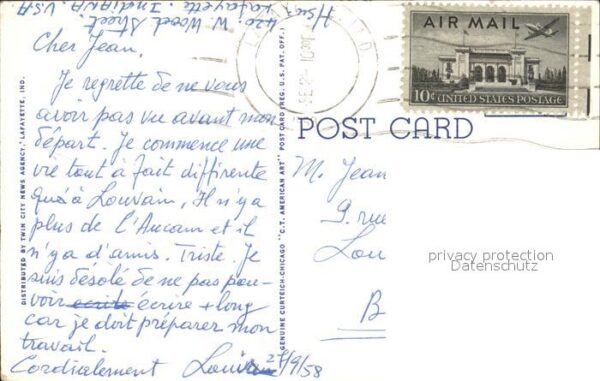 Hsu
420 W. Wood Street.
Lafayette. Indiana. U.S.A
Cher Jean.
Je regrette de ne vous
avoir pas vu avant mon
départ. Je commence une
vie tout à fait diffirente
qu'à Louvain, Il n'y a
plus de l'Aucam et il
n'y a d'amis. Triste. Je
suis désolé de ne pas pou-
voir ecrite écrire + long
car je doit préparer mon
travail.
Cordialement
27/9/58
DISTRIBUTED BY TWIN CITY NEWS AGENCY, LAFAYETTE, IND.
GENUINE CURTEICH-CHICAGO "C.T. AMERICAN ART" POST CARD (REG. U.S. PAT. OFF.)
AIR MAIL
10¢ UNITED STATES POSTAGE
POST CARD
M. Jean
9. rue
Lou
B
privacy protection
Datenschutz